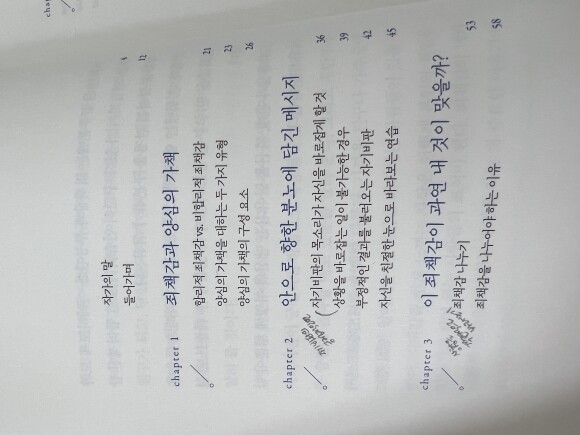 작가의 말 6
들어가며 12
chapter 1 죄책감과 양심의 가책
합리적 죄책감 vs. 비합리적 죄책감 21
양심의 가책을 대하는 두 가지 유형 23
양심의 가책의 구성 요소 26
chapter 2 안으로 향한 분노에 담긴 메시지
자기비판의 목소리가 자신을 바로잡게 할 것 36
상황을 바로잡는 일이 불가능한 경우 39
부정적인 결과를 불러오는 자기비판 42
자신을 친절한 눈으로 바라보는 연습 45
chapter 3 이 죄책감이 과연 내 것이 맞을까?
죄책감 나누기 53
죄책감을 나누어야 하는 이유 58